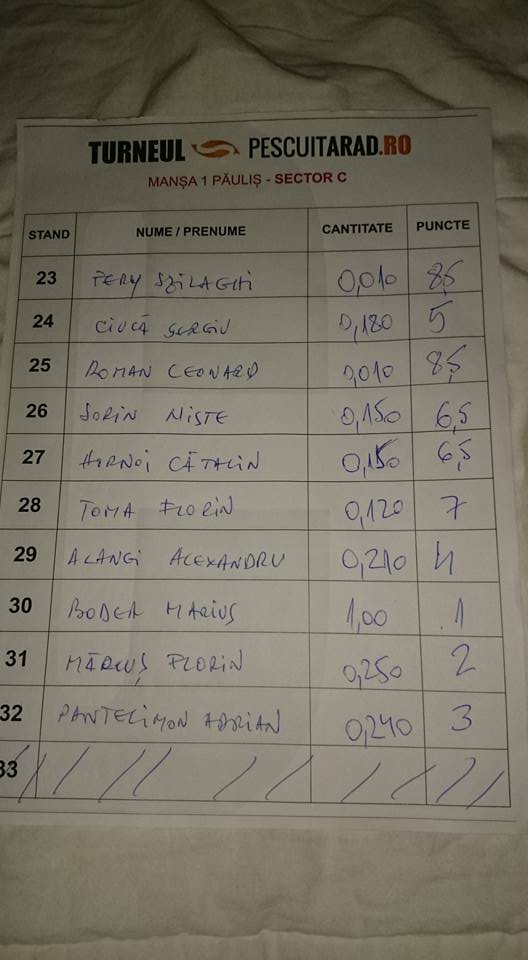 TURNEUL PESCUITARAD.RO
MANȘA 1 PĂULIȘ - SECTOR C
STAND NUME / PRENUME CANTITATE PUNCTE
23 FERY SZILAGHI 0,010 8,5
24 CIUCĂ SERGIU 0,180 5
25 ROMAN LEONARD 0,010 8,5
26 SORIN MIȘTE 0,150 6,5
27 CĂTALIN 0,150 6,5
28 TOMA FLORIN 0,120 7
29 ALANGI ALEXANDRU 0,210 4
30 BODEA MARIUS 1,00 1
31 MĂRCUȘ FLORIN 0,250 2
32 PANTELIMON ADRIAN 0,240 3
33